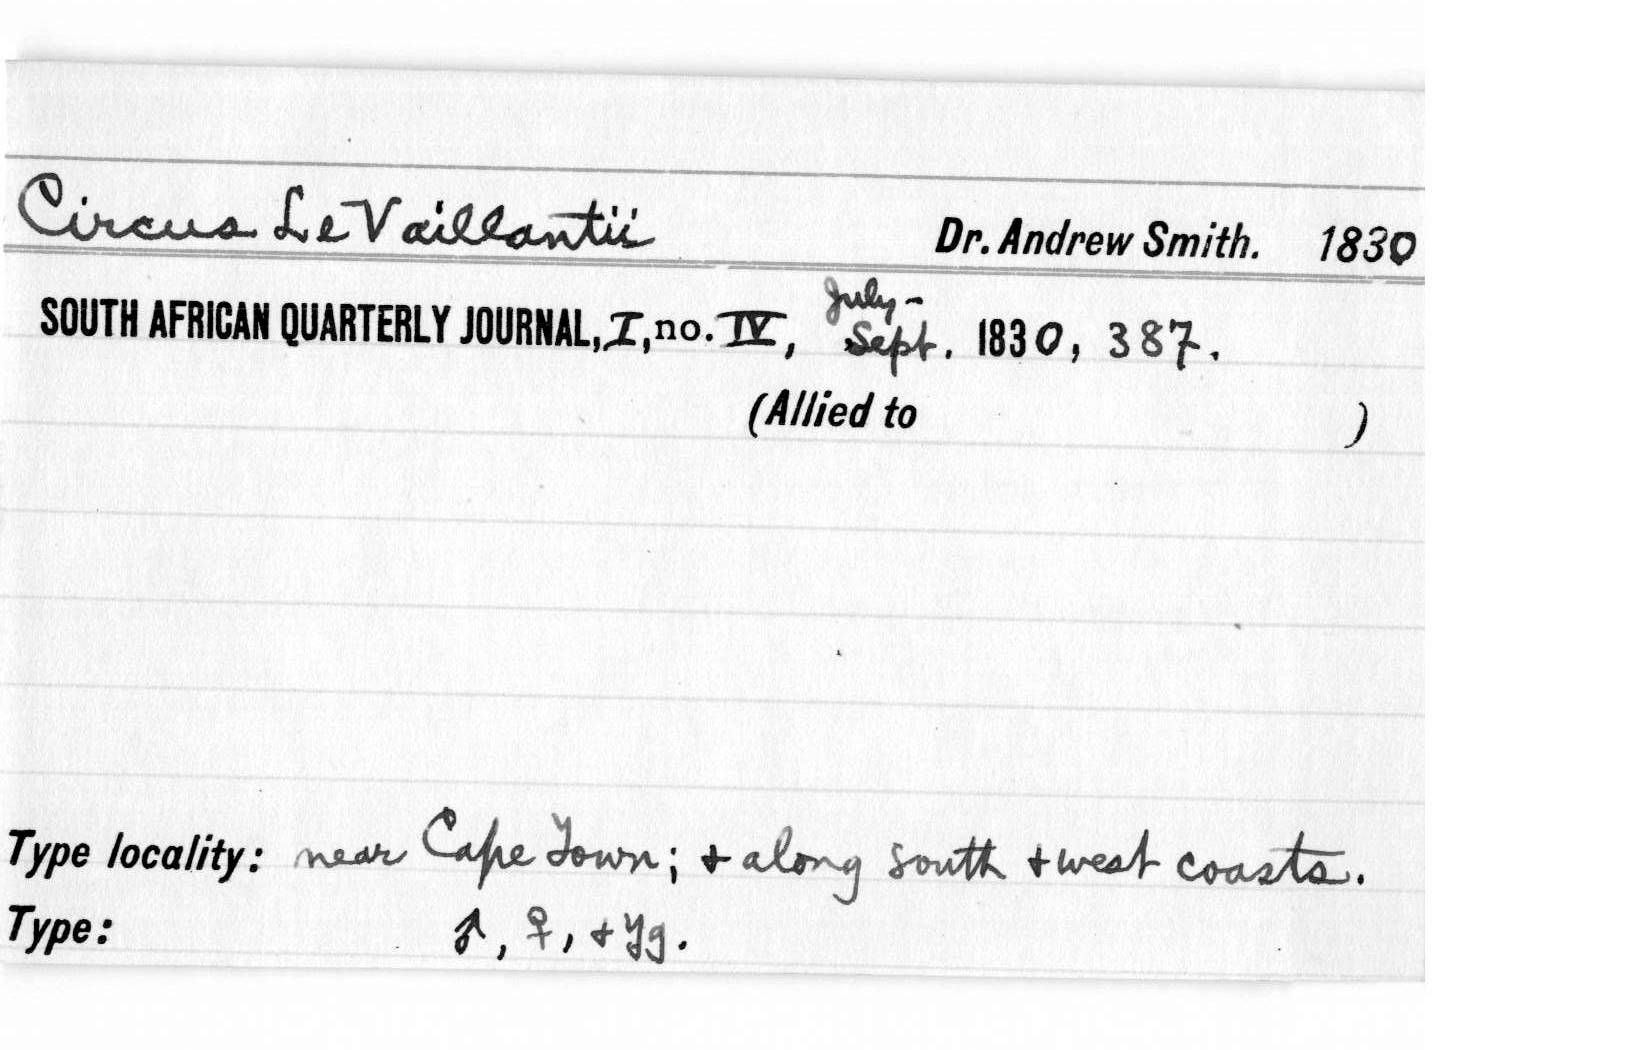 Circus LeVaillantii Dr. Andrew Smith. 1830
SOUTH AFRICAN QUARTERLY JOURNAL, I, no. IV, July-Sept. 1830, 387.
(Allied to )
Type locality: near Cape Town; + along south + west coasts.
Type: ♂, ♀, + Yg.